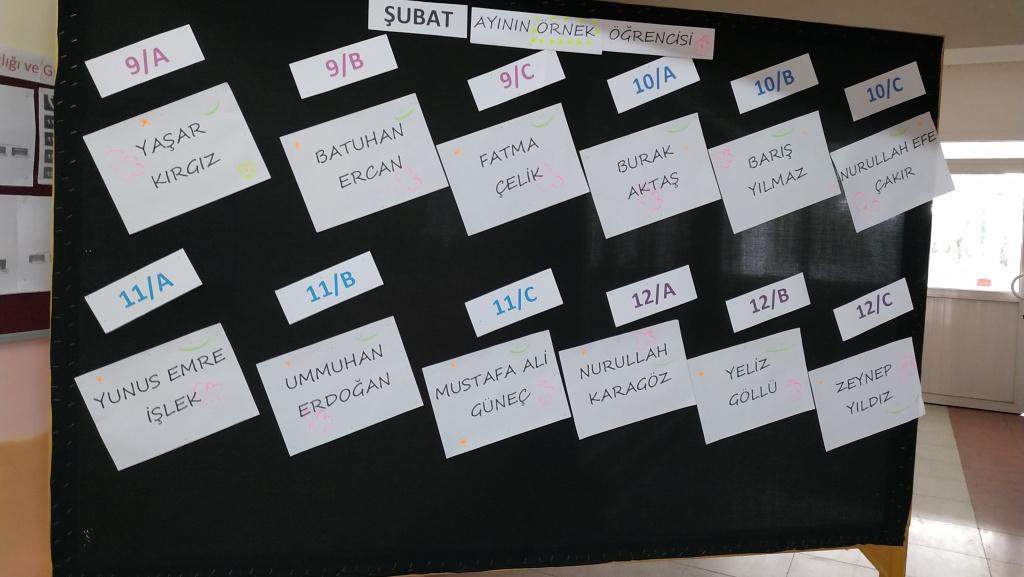 ŞUBAT AYININ ÖRNEK ÖĞRENCİSİ
9/A
YAŞAR
KIRGIZ
9/B
BATUHAN
ERCAN
9/C
FATMA
ÇELİK
10/A
BURAK
AKTAŞ
10/B
BARIŞ
YILMAZ
10/C
NURULLAH EFE
ÇAKIR
11/A
YUNUS EMRE
İŞLEK
11/B
UMMUHAN
ERDOĞAN
11/C
MUSTAFA ALİ
GÜNEÇ
12/A
NURULLAH
KARAGÖZ
12/B
YELİZ
GÖLLÜ
12/C
ZEYNEP
YILDIZ